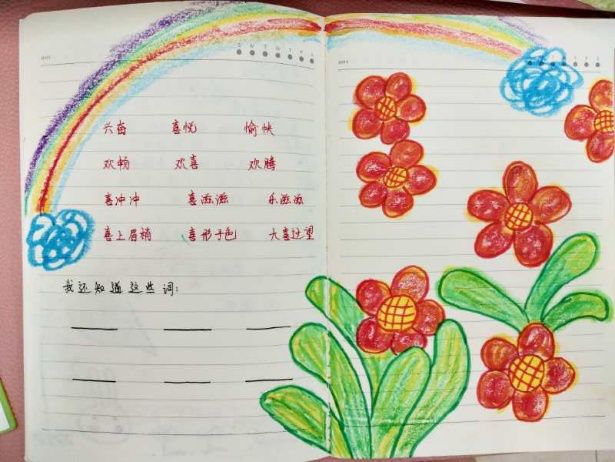 兴奋 喜悦 愉快
欢畅 欢喜 欢腾
喜冲冲 喜滋滋 乐滋滋
喜上眉梢 喜形于色 大喜过望
我还知道这些词: